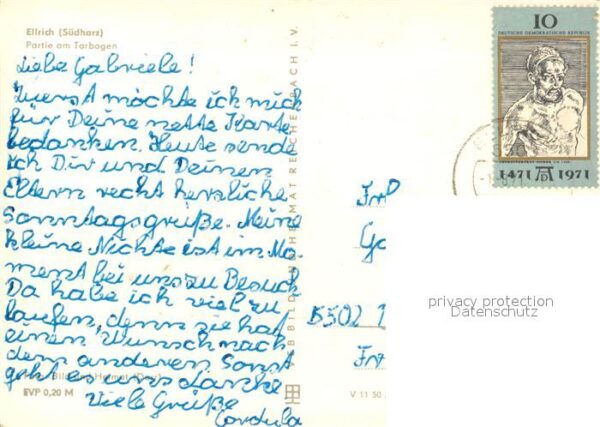 Ellrich (Südharz)
Partie am Torbogen
Liebe Gabriele!
Zuerst möchte ich mich
für Deine nette Karte
bedanken. Heute sende
ich Dir und Deinen
Eltern recht herzliche
Sonntagsgrüße. Meine
kleine Nichte ist im Mo-
ment bei uns zu Besuch
Da habe ich viel zu
laufen, denn sie hat
einen Wunsch nach
dem anderen Sonst
geht es uns Danke
Viele Grüße
Cordula
EVP 0,20 M
V 11 50
VEB BILD UND HEIMAT REICHENBACH I. V.
10
DEUTSCHE DEMOKRATISCHE REPUBLIK
1471 AD 1971
Frl
Ga
5502
privacy protection
Datenschutz